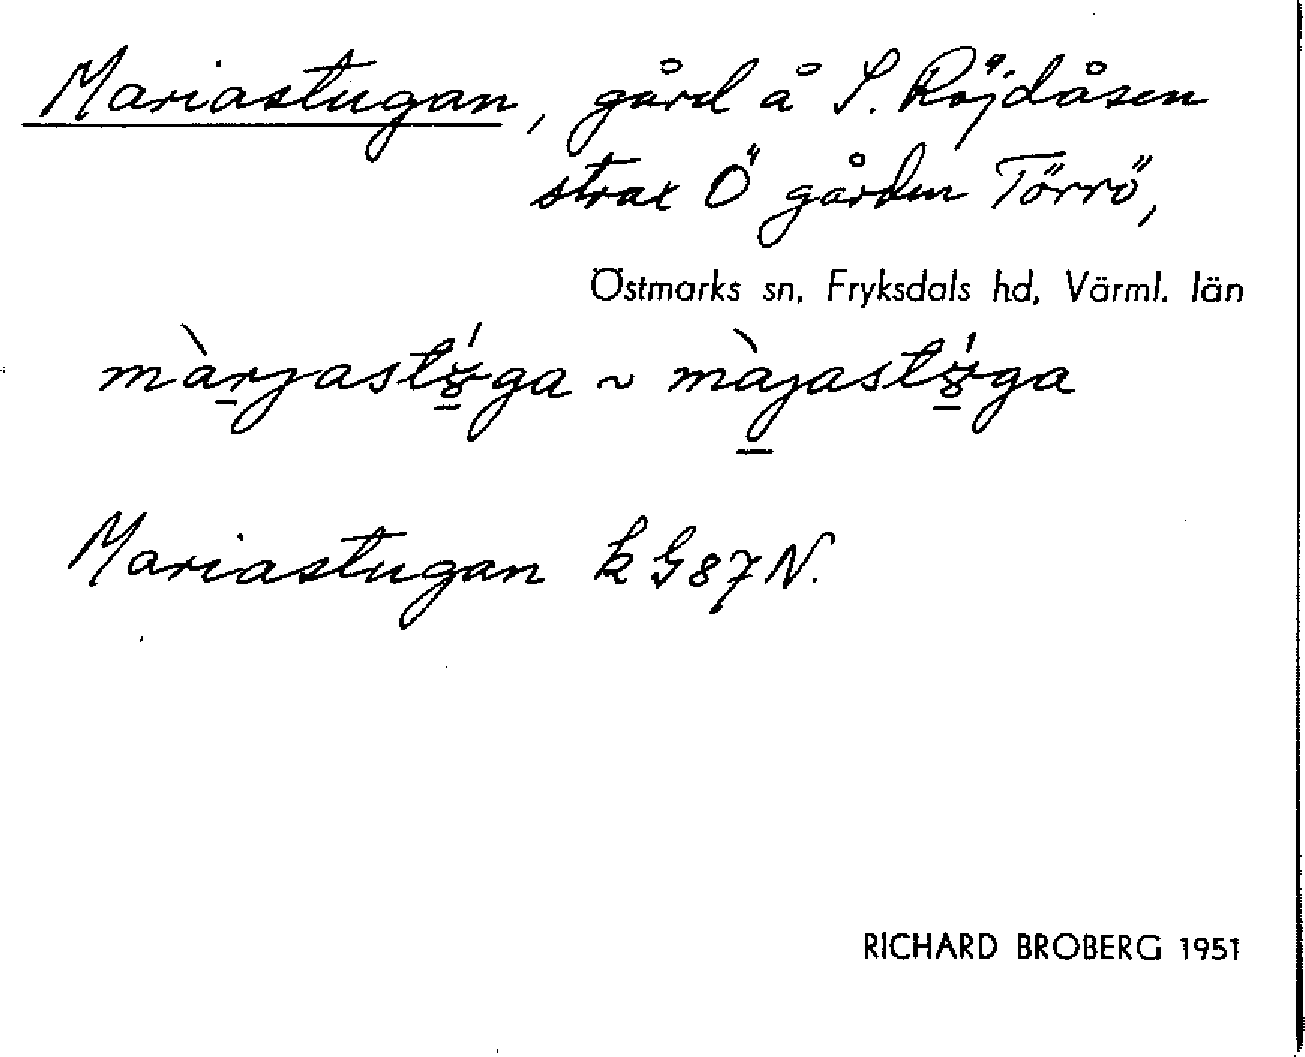 Mariastugan, gård å S. Röjdåsen
strax Ö gården Törrö,
Östmarks sn, Fryksdals hd, Värml. län
~
Mariastugan k G87N.
RICHARD BROBERG 1951